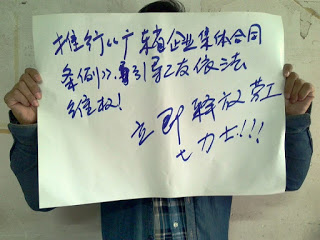 推行《广东省企业集体合同
条例》,引导工友依法
维权!
立即释放劳工
七力士!!!